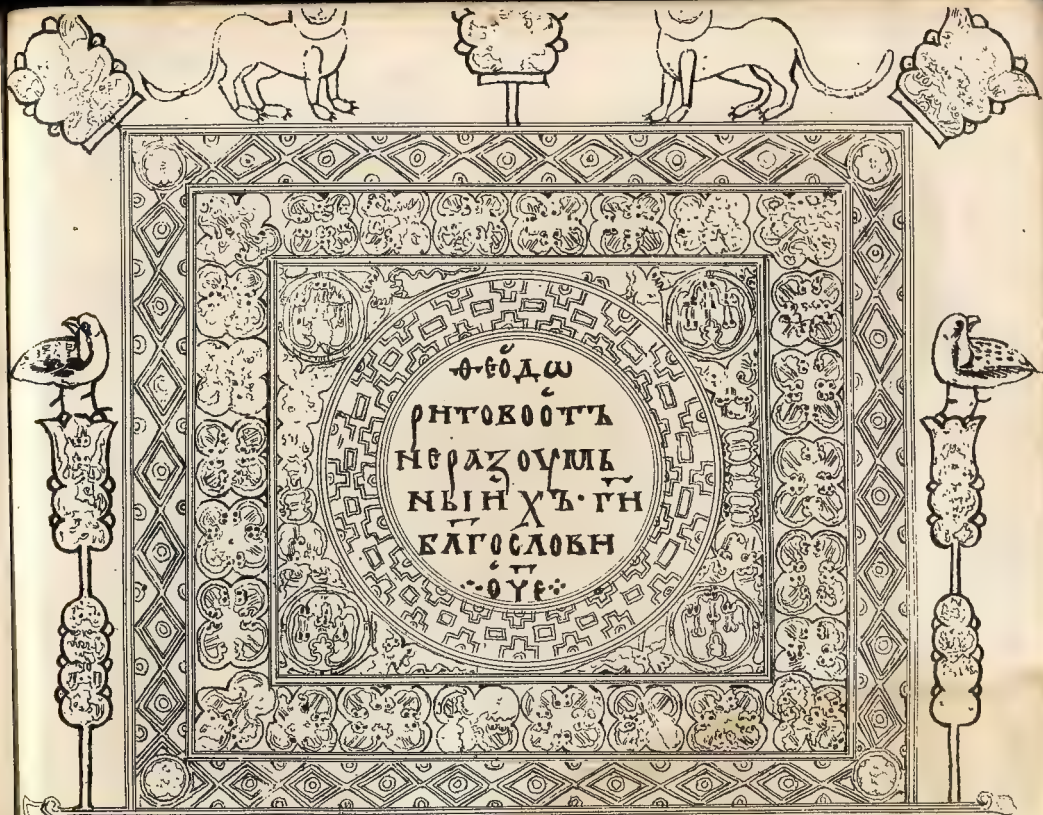 ѳео҆дѡ
ритовоо҆тъ
неразоумь
ныихъ· гн҃
бл҃гослови
·:о҆ч҃е:·